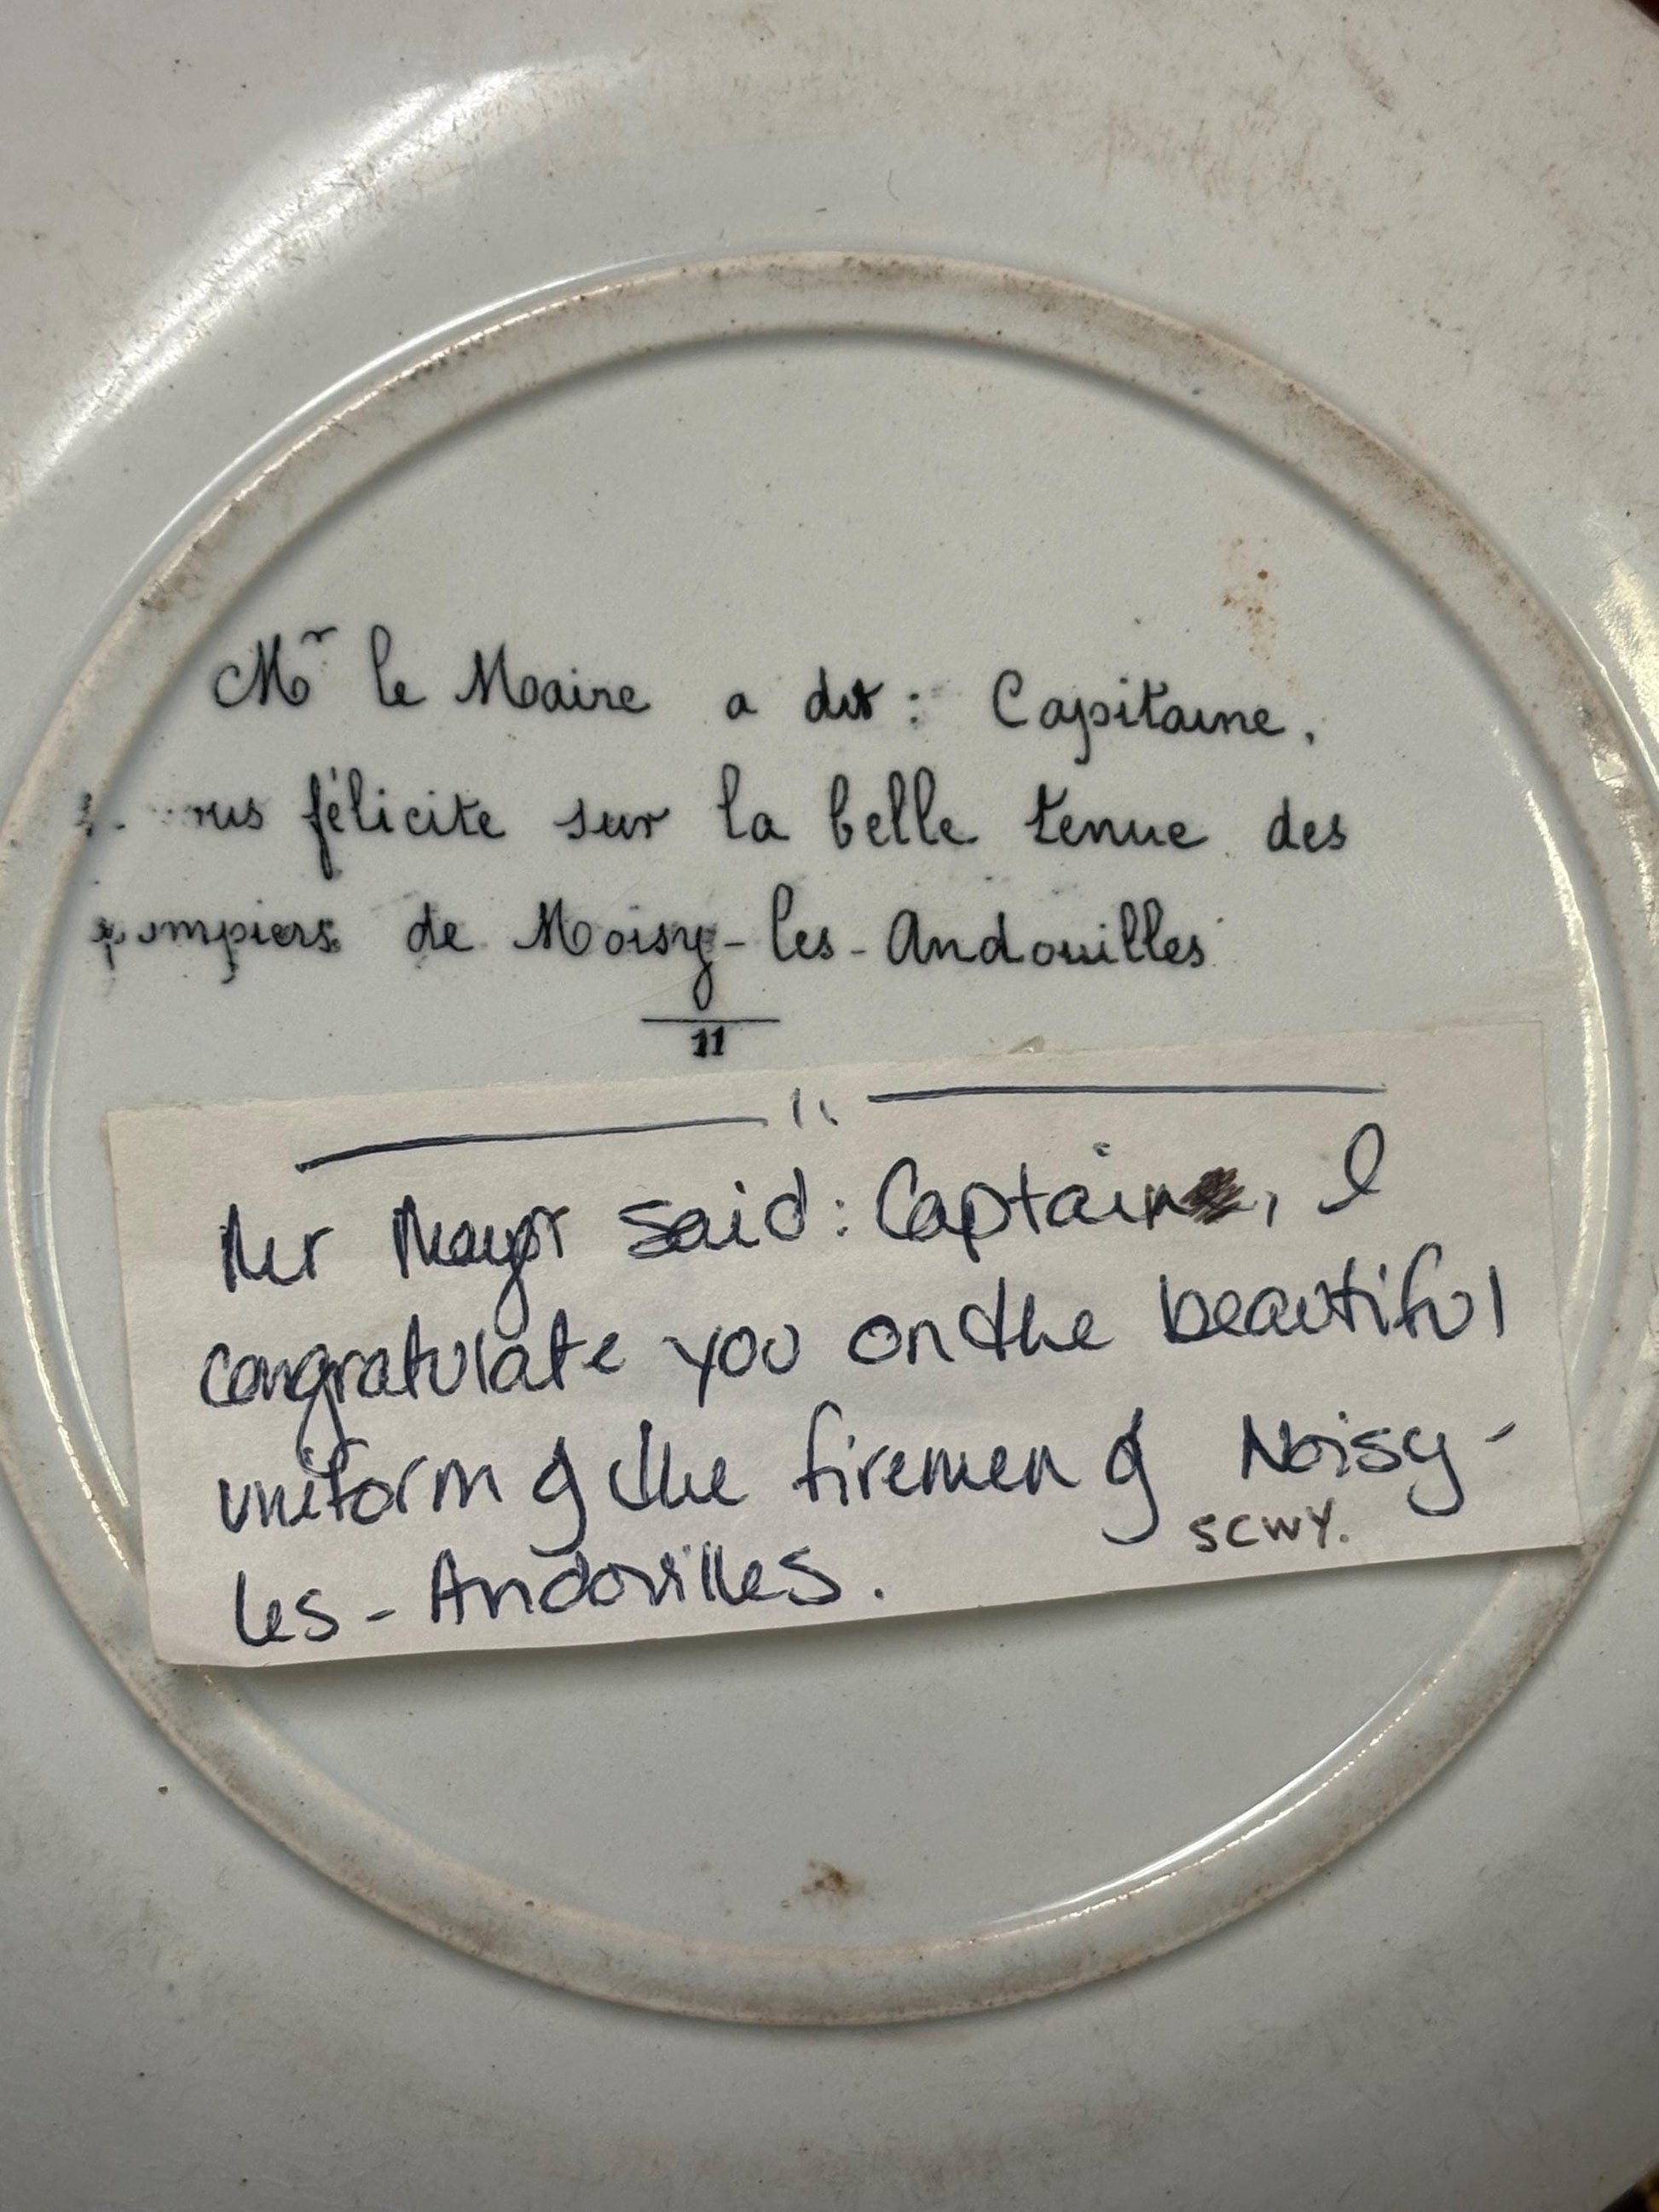 Mr le Maire a dit : Capitaine,
félicite sur la belle tenue des
pompiers de Noisy-les-Andouilles
11
"
Mr Mayor said: Captain, I
congratulate you on the beautiful
uniform of the firemen of Noisy-
les-Andovilles.
SCWY.